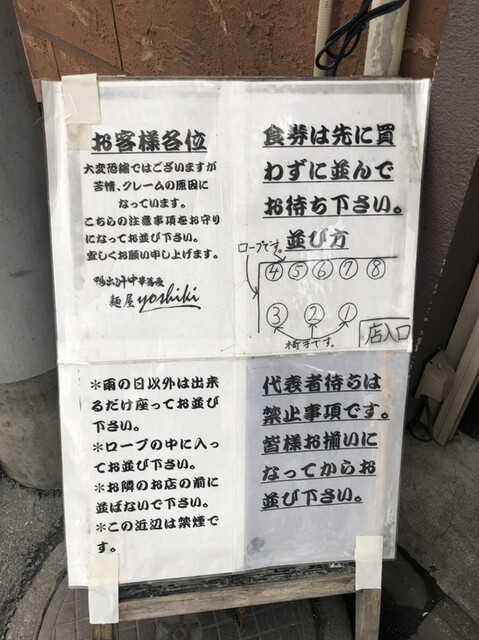 お客様各位
大変恐縮ではございますが
苦情、クレームの原因に
なっています。
こちらの注意事項をお守り
になってお並び下さい。
宜しくお願い申し上げます。
鴨出汁中華蕎麦
麺屋yoshiki
食券は先に買
わずに並んで
お待ち下さい。
並び方
ロープです。
④⑤⑥⑦⑧
③ ② ①
椅子です。
店入口
＊雨の日以外は出来
るだけ座ってお並び
下さい。
＊ロープの中に入っ
てお並び下さい。
＊お隣のお店の前に
並ばないで下さい。
＊この近辺は禁煙で
す。
代表者待ちは
禁止事項です。
皆様お揃いに
なってからお
並び下さい。